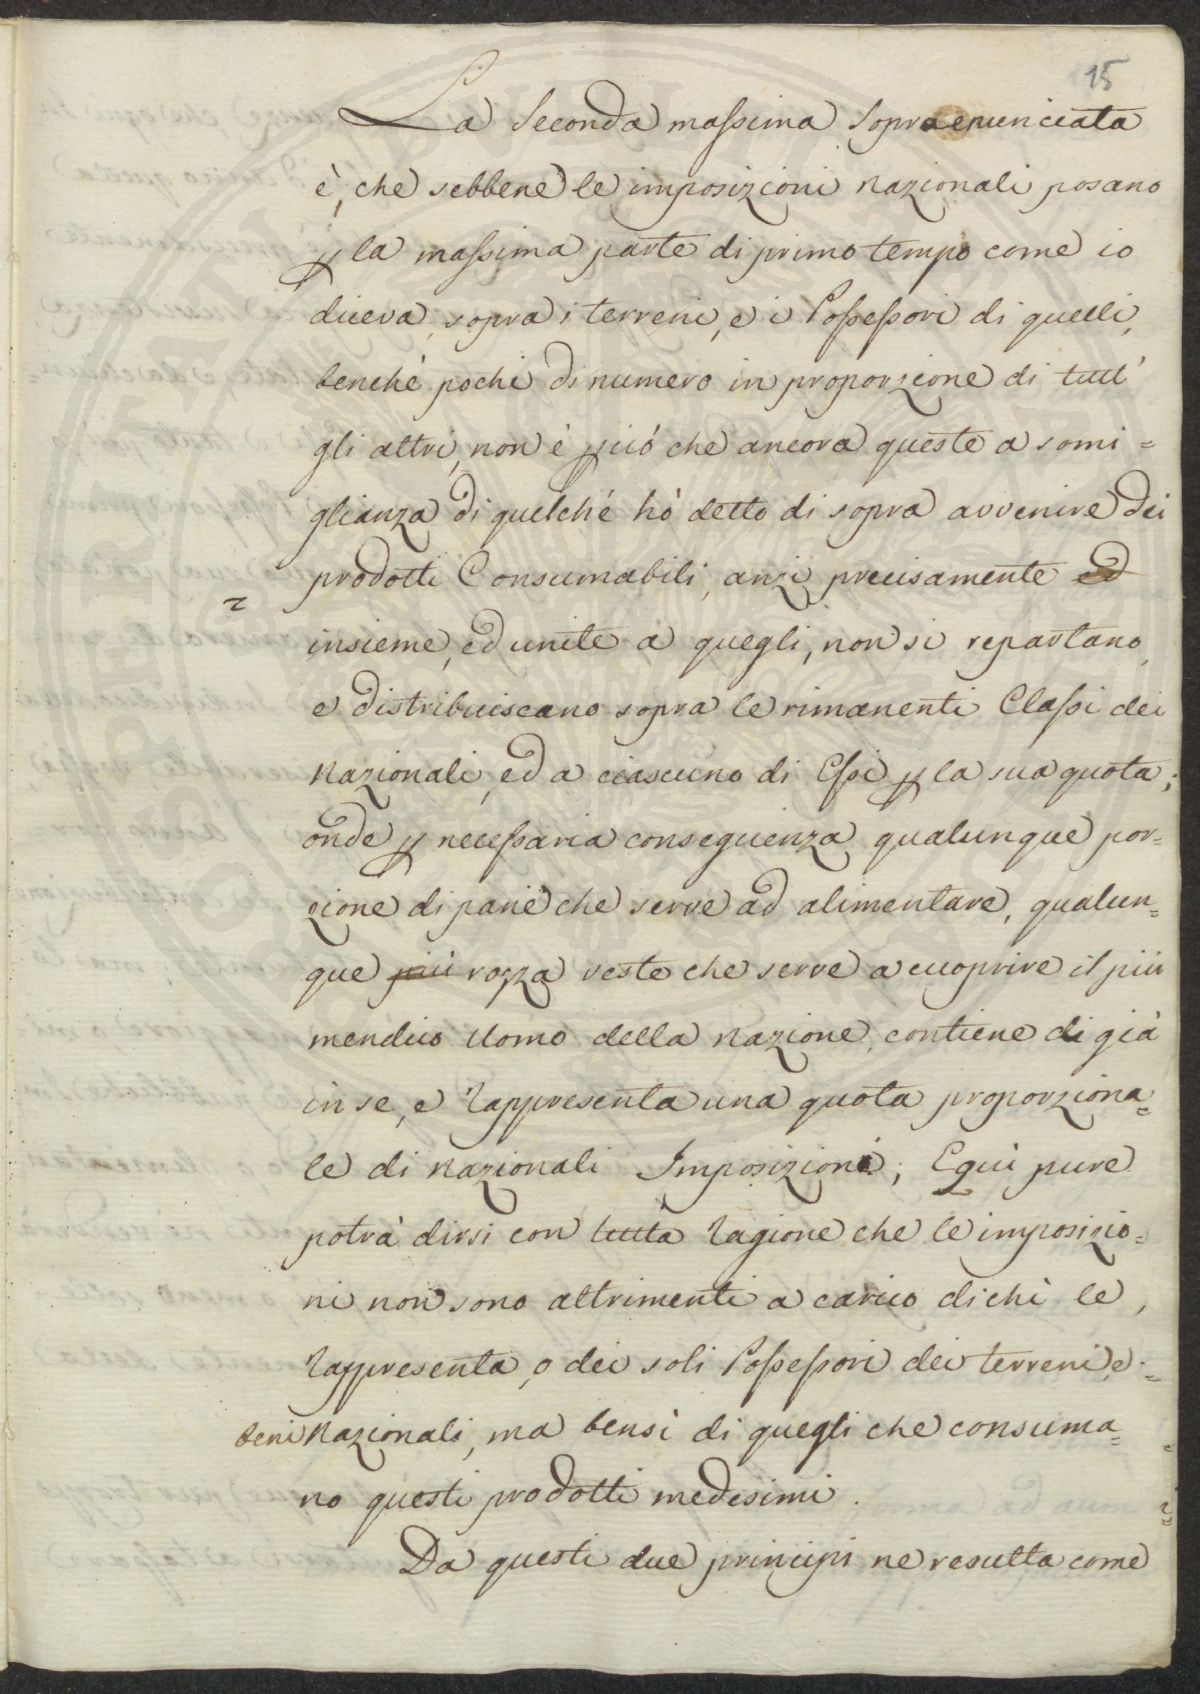 15
La Seconda massima sopra enunciata
è, che sebbene le imposizioni nazionali posano
p la massima parte di primo tempo come io
diceva, sopra i terreni, e i Possessori di quelli,
benché pochi di numero in proporzione di tutt'
gli altri, non è p ciò che ancora queste a somi=
glianza di quelché hò detto di sopra avvenire dei
prodotti Consumabili, anzi precisamente ed
insieme, ed unite a quegli, non si repartano,
e distribuiscano sopra le rimanenti Classi dei
Nazionali, ed a ciascuno di Essi p la sua quota;
onde p necessaria conseguenza qualunque por=
zione di pane che serve ad alimentare, qualun=
que più rozza veste che serve a cuoprire il più
mendico Uomo della Nazione, contiene di già
in se, e rappresenta una quota proporziona=
le di Nazionali Imposizioni; E quì pure
potrà dirsi con tutta ragione che le imposizio=
ni non sono altrimenti a carico di chi le,
rappresenta, o dei soli Possessori dei terreni, e =
beni Nazionali, ma bensì di quegli che consuma=
no questi prodotti medesimi.
Da questi due principi ne resulta come